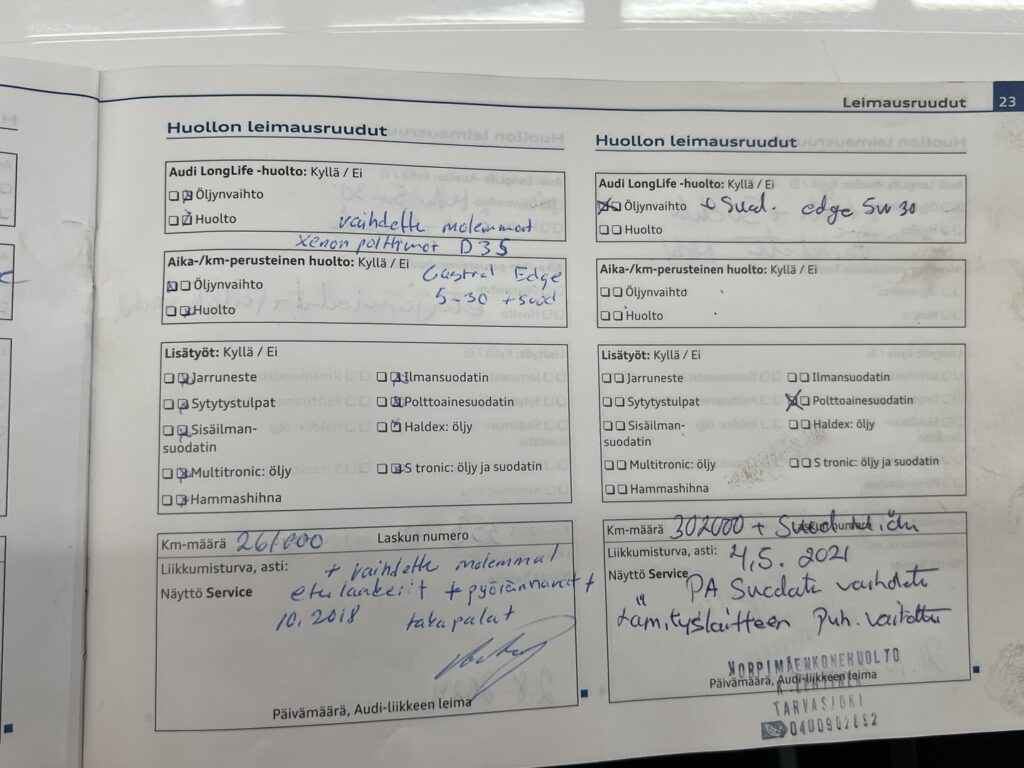 Leimausruudut 23
Huollon leimausruudut
Audi LongLife -huolto: Kyllä / Ei
Öljynvaihto
Huolto
vaihdettu molemmat
xenon polttimot D3S
Aika-/km-perusteinen huolto: Kyllä / Ei
Öljynvaihto Castrol Edge
5-30 + suod
Huolto
Lisätyöt: Kyllä / Ei
Jarruneste Ilmansuodatin
Sytytystulpat Polttoainesuodatin
Sisäilman-
suodatin
Haldex: öljy
Multitronic: öljy S tronic: öljy ja suodatin
Hammashihna
Km-määrä 261000 Laskun numero
Liikkumisturva, asti: + vaihdettu molemmat
Näyttö Service etulankerit + pyörännavat +
10.2018 takapalat
Päivämäärä, Audi-liikkeen leima
Huollon leimausruudut
Audi LongLife -huolto: Kyllä / Ei
Öljynvaihto + Suod. edge 5w30
Huolto
Aika-/km-perusteinen huolto: Kyllä / Ei
Öljynvaihto
Huolto
Lisätyöt: Kyllä / Ei
Jarruneste Ilmansuodatin
Sytytystulpat Polttoainesuodatin
Sisäilman-
suodatin
Haldex: öljy
Multitronic: öljy S tronic: öljy ja suodatin
Hammashihna
Km-määrä 302000 +
Liikkumisturva, asti: 4,5. 2021
Näyttö Service PA vaihdettu
Puh.
KORPIMÄENKONEHUOLTO
Päivämäärä, Audi-liikkeen leima
TARVASJOKI
0400902892